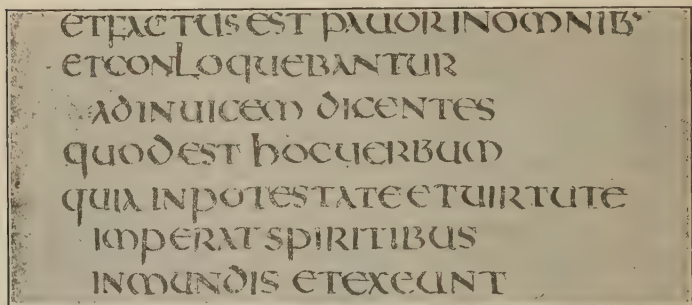 ETFACTUSEST PAUOR INOMNIB·
ETCONLOQUEBANTUR
ADINUICEM DICENTES
QUODEST HOCUERBUM
QUIA INPOTESTATE ETUIRTUTE
IMPERAT SPIRITIBUS
INMUNDIS ETEXEUNT